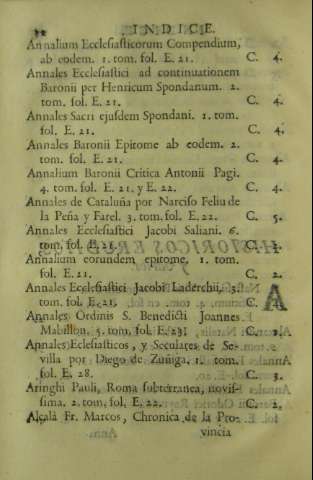 INDICE.
Annalium Ecclesiasticorum Compendium,
ab eodem. 1. tom. fol. E. 21. C. 4.
Annales Ecclesiastici ad continuationem
Baronii per Henricum Spondanum. 2.
tom. fol. E. 21. C. 4.
Annales Sacri ejusdem Spondani. 1. tom.
fol. E. 21. C. 4.
Annales Baronii Epitome ab eodem. 2.
tom. fol. E. 21. C. 4.
Annalium Baronii Critica Antonii Pagi.
4. tom. fol. E. 21. y E. 22. C. 4.
Annales de Cataluña por Narciso Feliu de
la Peña y Farel. 3. tom. fol. E. 22. C. 5.
Annales Ecclesiastici Jacobi Saliani. 6.
tom. fol. E. 21. C.
Annalium eorundem epitome. 1. tom.
fol. E. 21. C. 2.
Annales Ecclesiastici Jacobi Laderchii, 3.
tom. fol. E. 21. C.
Annales Ordinis S. Benedicti Joannes
Mabillon. 5. tom. fol. E. 23. C.
Annales Eclesiasticos, y Seculares de Se-
villa por Diego de Zuñiga. 1. tom.
fol. E. 28. C. 3.
Aringhi Pauli, Roma subterranea, novis-
sima. 2. tom. fol. E. 22. C. 2.
Alcalà Fr. Marcos, Chronica de la Pro-
vincia